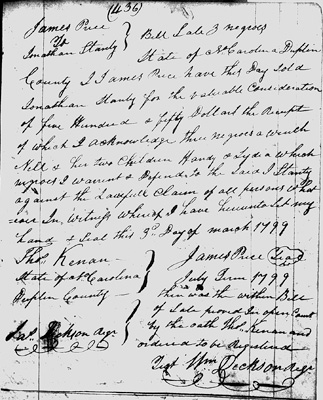 (436)
James Price
To
Jonathan Stanly
Bill Sale 3 negroes
State of No Carolina Duplin
County I James Price have this Day Sold
Jonathan Stanly for the valuable Consideration
of five Hundred & fifty Dollars the Receipt
of which I acknowledge three negroes a wench
Nell & her two Children Handy & Lydia which
negroes I warrant & Defend to the Said J Stanly
against the Lawfull Claim of all persons What
=ever In Witness Whereof I have hereunto Set my
hand & Seal this 3d Day of march 1799
Thos Kenan
James Price Seal
State of No Carolina
Duplin County
July Term 1799
then was the within Bill
of Sale proved In open Court
by the oath Thos Kenan and
ordered to be Registered
Jas Dickson Regr
Test Wm Dickson Regr